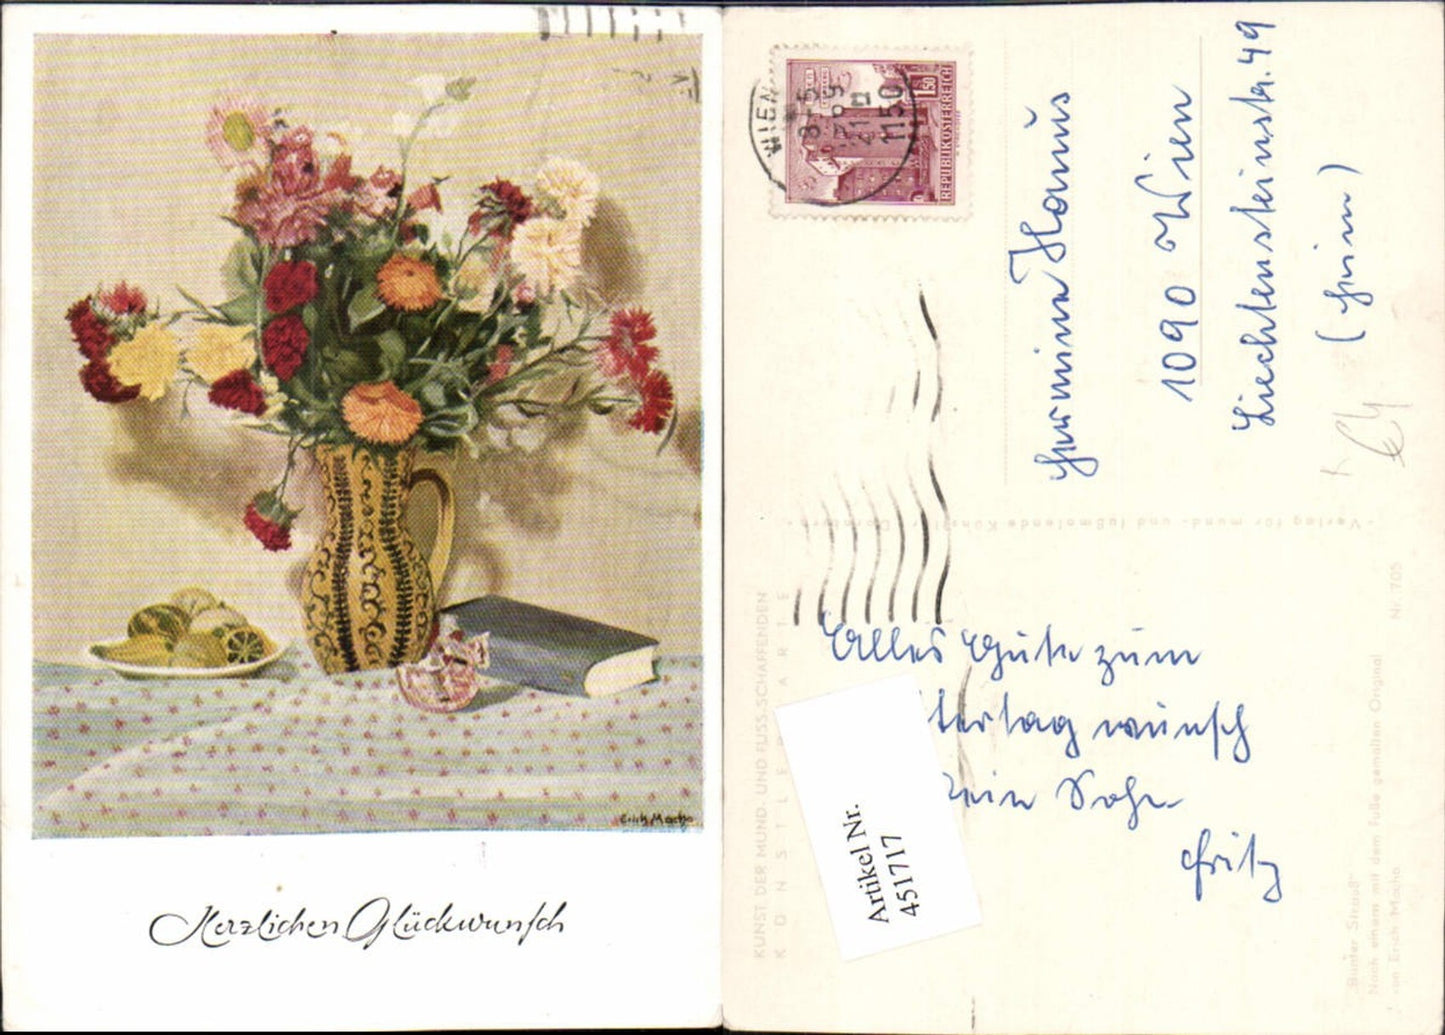 Erich Macho
Herzlichen Glückwunsch
WIEN
8-5
1150
150
REPUBLIK ÖSTERREICH
Hermine Hanus
1090 Wien
Liechtensteinstr. 49
(Heim)
Verlag für mund- und fußmalende Künstler, Dornbirn
KUNST DER MUND- UND FUSS-SCHAFFENDEN
KÜNSTLERKARTE
Nr. 705
Alles Gute zum
tertag wünscht
Dein Sohn
Fritz
Artikel Nr.
451717
"Bunter Strauß"
Nach einem mit dem Fuße gemalten Original
von Erich Macho